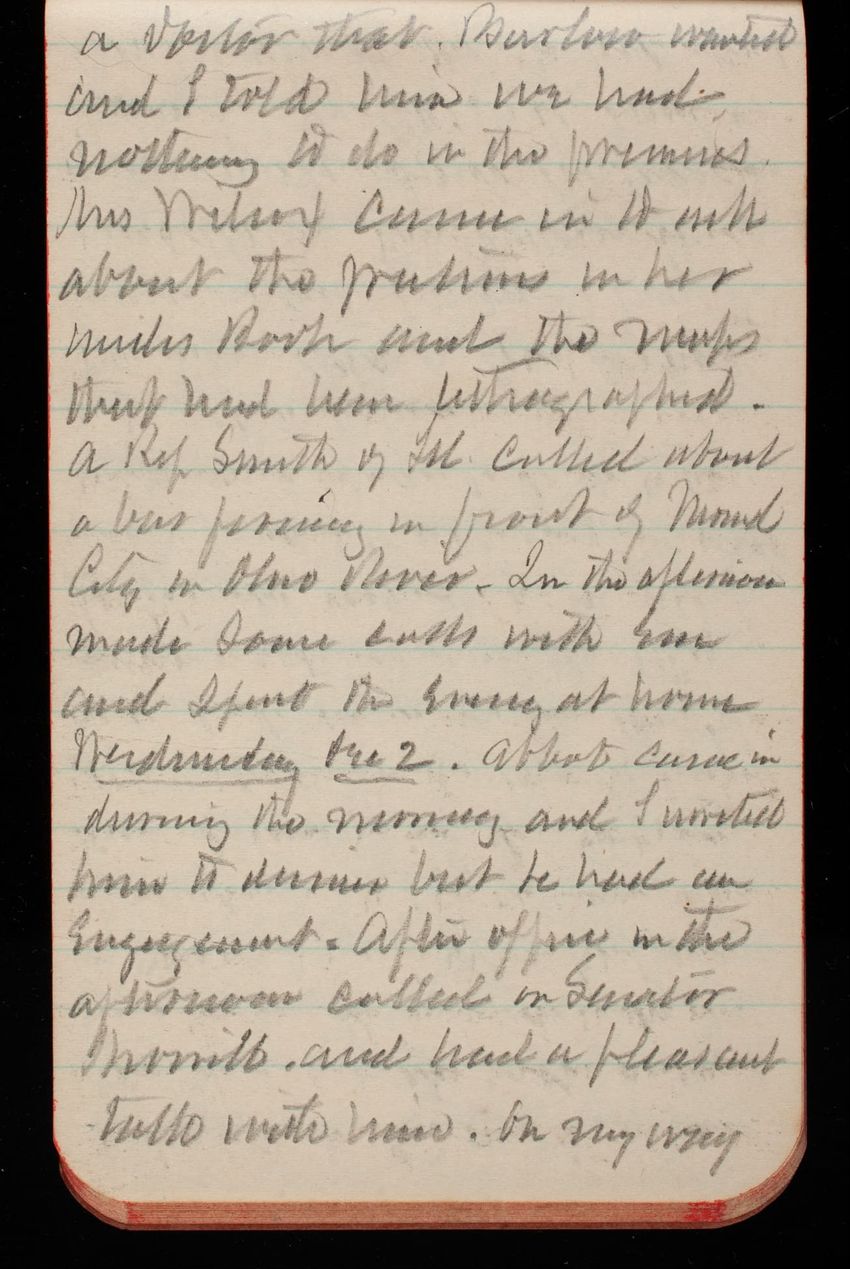 a doctor that Barlow wanted
and I told him we had
nothing to do in the premises.
Mrs Wilcox came in to ask
about the positions in her
index Book and the maps
that had been lithographed.
A Rep Smith of Ill called about
a bar forming in front of Mound
City in Ohio River. In the afternoon
made some calls with
and spent the evening at home
Wednesday Dec 2. Abbot came in
during the morning and I invited
him to dinner but he had an
Engagement. After office in the
afternoon called on Senator
Morrill. and had a pleasant
talk with him. On my way